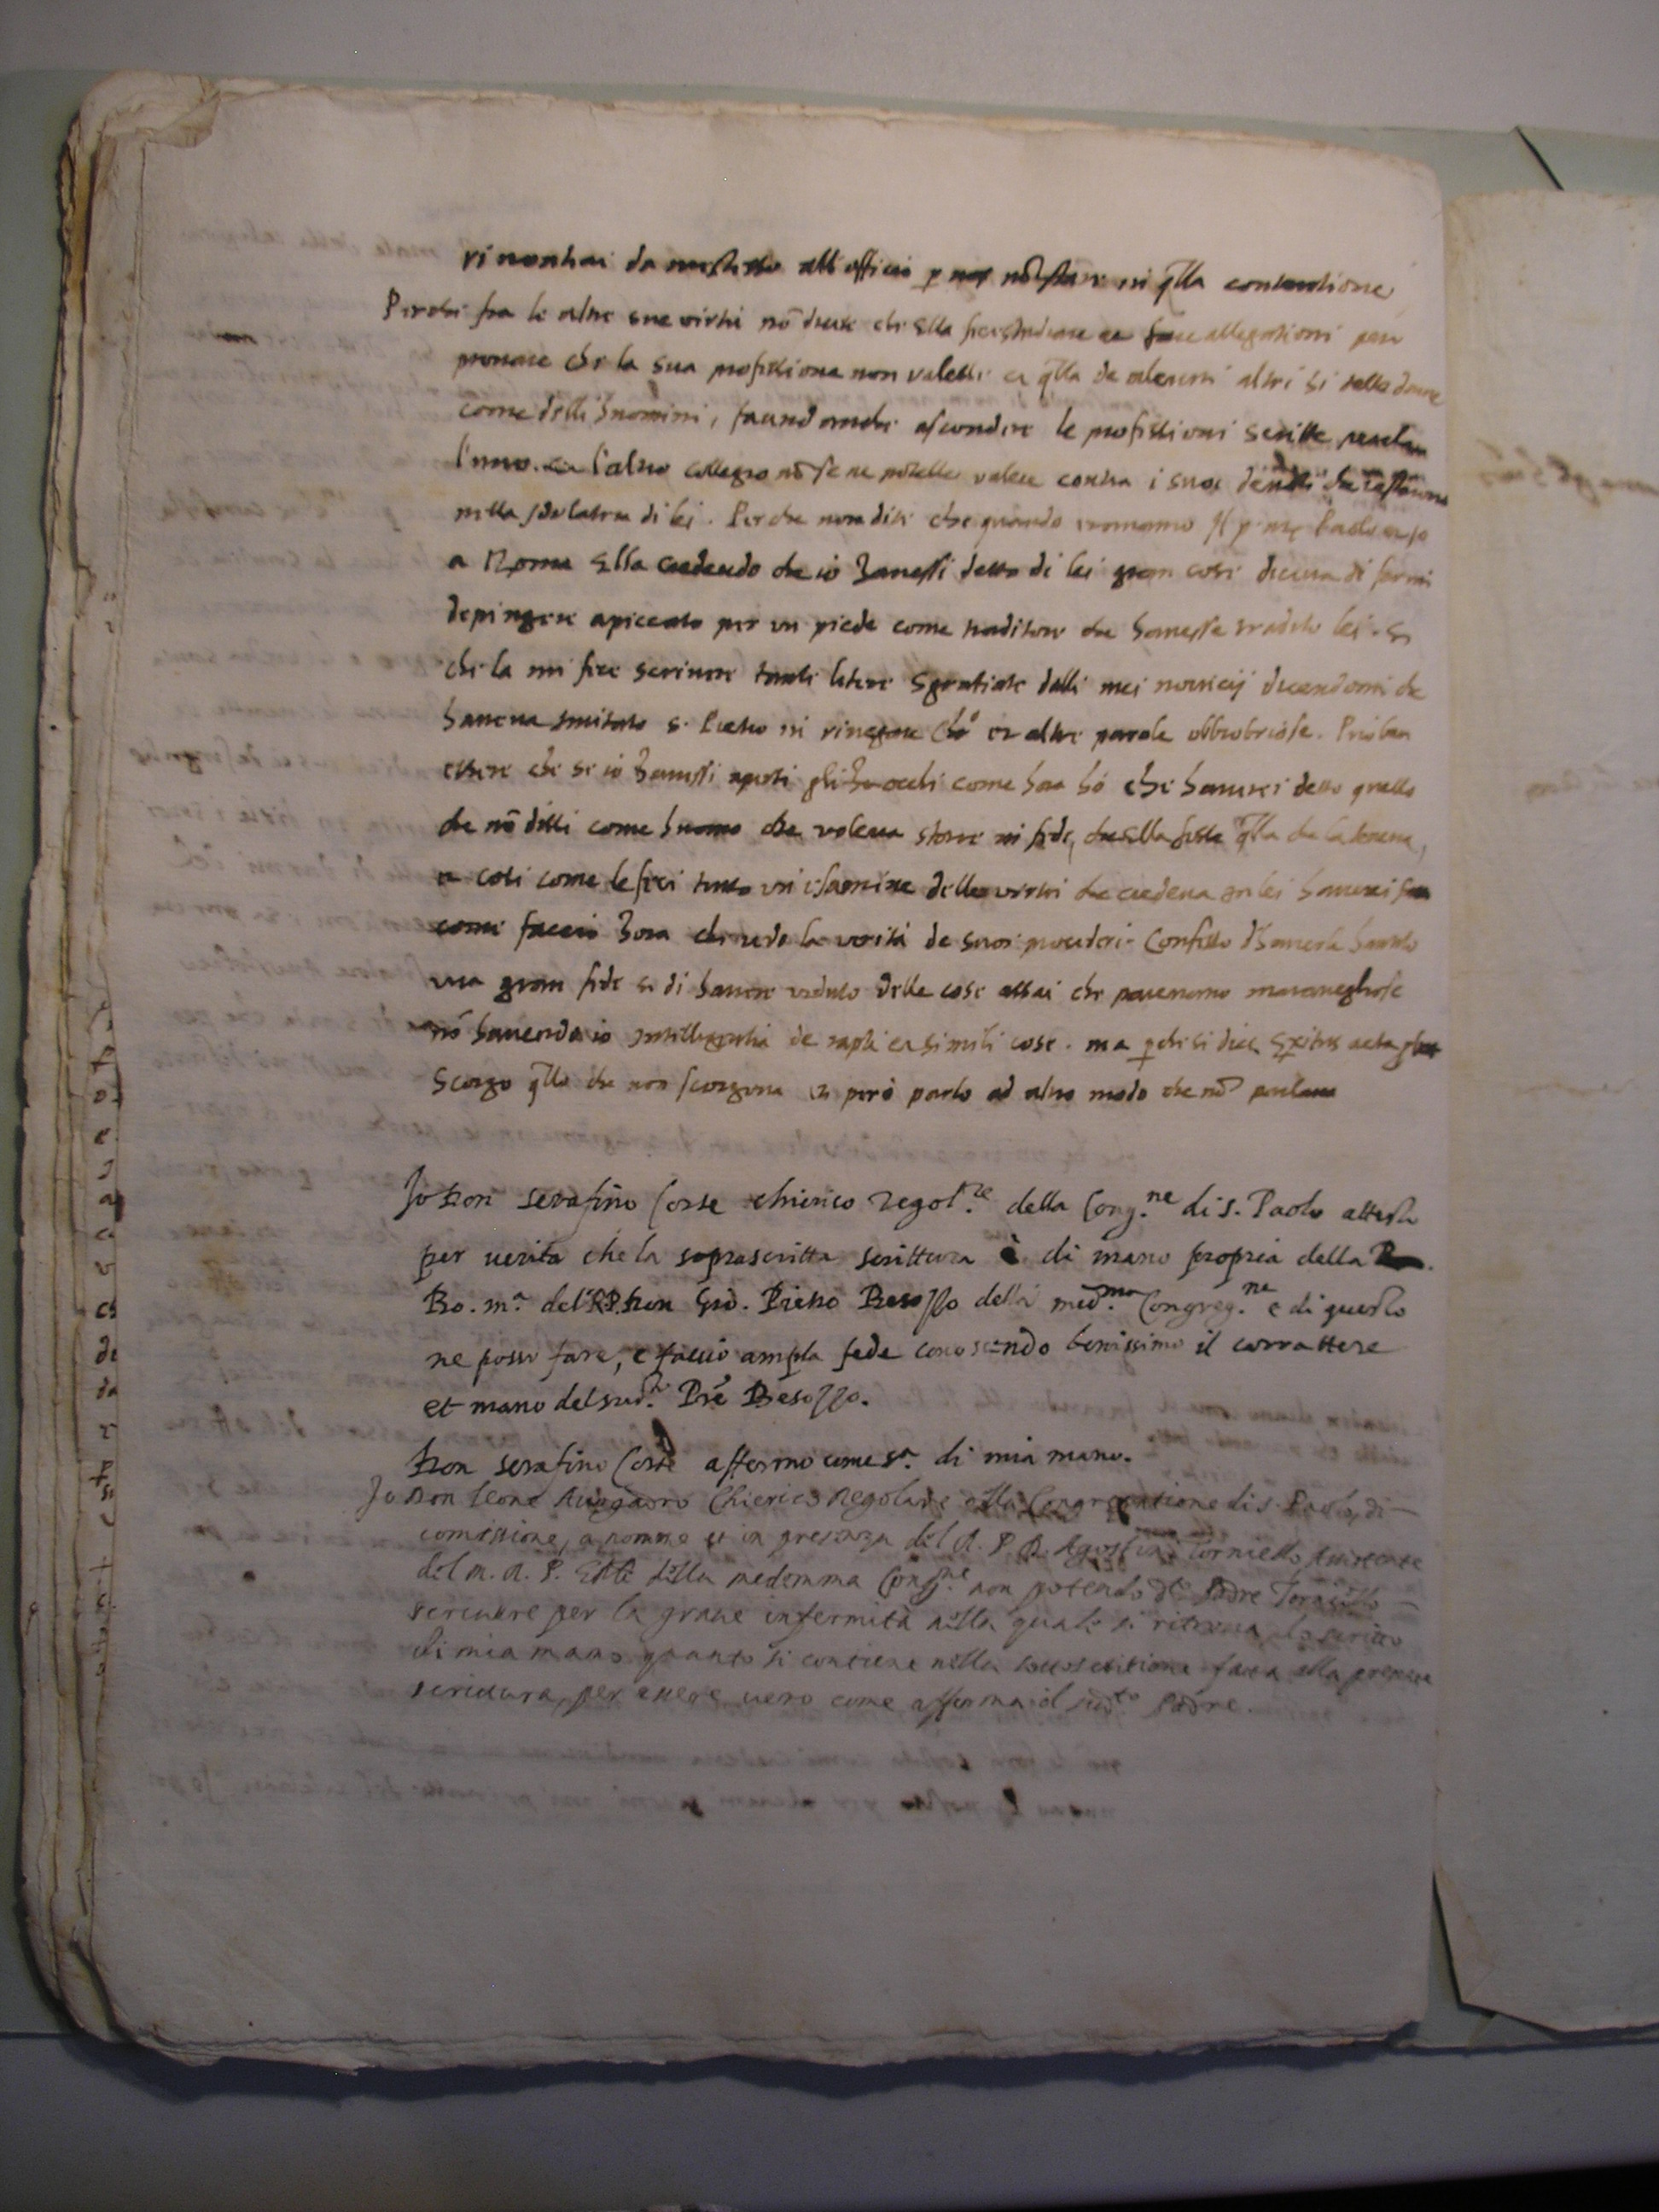 rinontiai da me stesso all officio p nō stare in q̃lla contentione
Perche fra le altre sue virtù nō dicete che ella fece studiare et fare allegationi per
provare che la sua professione non valesse et q̃lla de alcuni altri si delle donne
come delli huomini, facendo anche ascondere le professioni scritte
l'uno l'altro collegio nō se ne potesse valere contra i suoi
nella idolatria di lei. Perche non dite che quando venimmo il p. Paolo et io
a Roma Ella credendo che io havessi detto di lei gran cose diceva di farmi
depingere apiccato per un piede come traditore che havesse tradito lei. Et
che la mi fece scrivere tante letere sgratiate dalli mei novicij dicendomi che
haveva imitato S. Pietro in rinegare Chō et altre parole obbrobriose. Puo ben
essere che se io havessi aperti gli occhi come hora hó che haverei detto quello
che nō dissi come huomo che voleva stare in fede, che ella fosse q̃lla che la teneva,
et cosi come le feci tutto un esamine delle virtù che credeva in lei haverei
come faccio hora che vedo la verità de suoi procederi. Confesso d'haverle havuto
una gran fede et di havere veduto delle cose assai che parevano maravegliose
nō havendo io intelligentia de rapti et simili cose. ma p̱che si dice Exitus acta
Scorgo q̃llo che non scorgeva et però parlo ad altro modo che nō parlava
Io Don Serafino Corse chierico regol.re della Cong.ne di S. Paolo attesto
per verita che la soprascritta scrittura è di mano propria della
Bo. m.a del R.P. Don Gio. Pietro Besozzo della med.ma Congreg.ne e di questo
ne posso fare, e faccio ampla fede conoscendo benissimo il carrattere
et mano del sud.to Prē Besozzo.
Don Serafino Corse affermo come s.a di mia mano.
Io Don Leone Avogadro Chierico Regolare della Congregatione di S. Paolo, di
comissione, a nome et in presenza del R. P. D. Agostino Torniello Assistente
del M. R. P. Gñle della medemma Cong.ne non potendo d.to Padre Torniello
scrivere per la grave infermità nella quale si ritrova ho scritto
di mia mano quanto si contiene nella sottoscrittione fatta alla presente
scrittura, per essere vero come afferma il sud.to Padre.